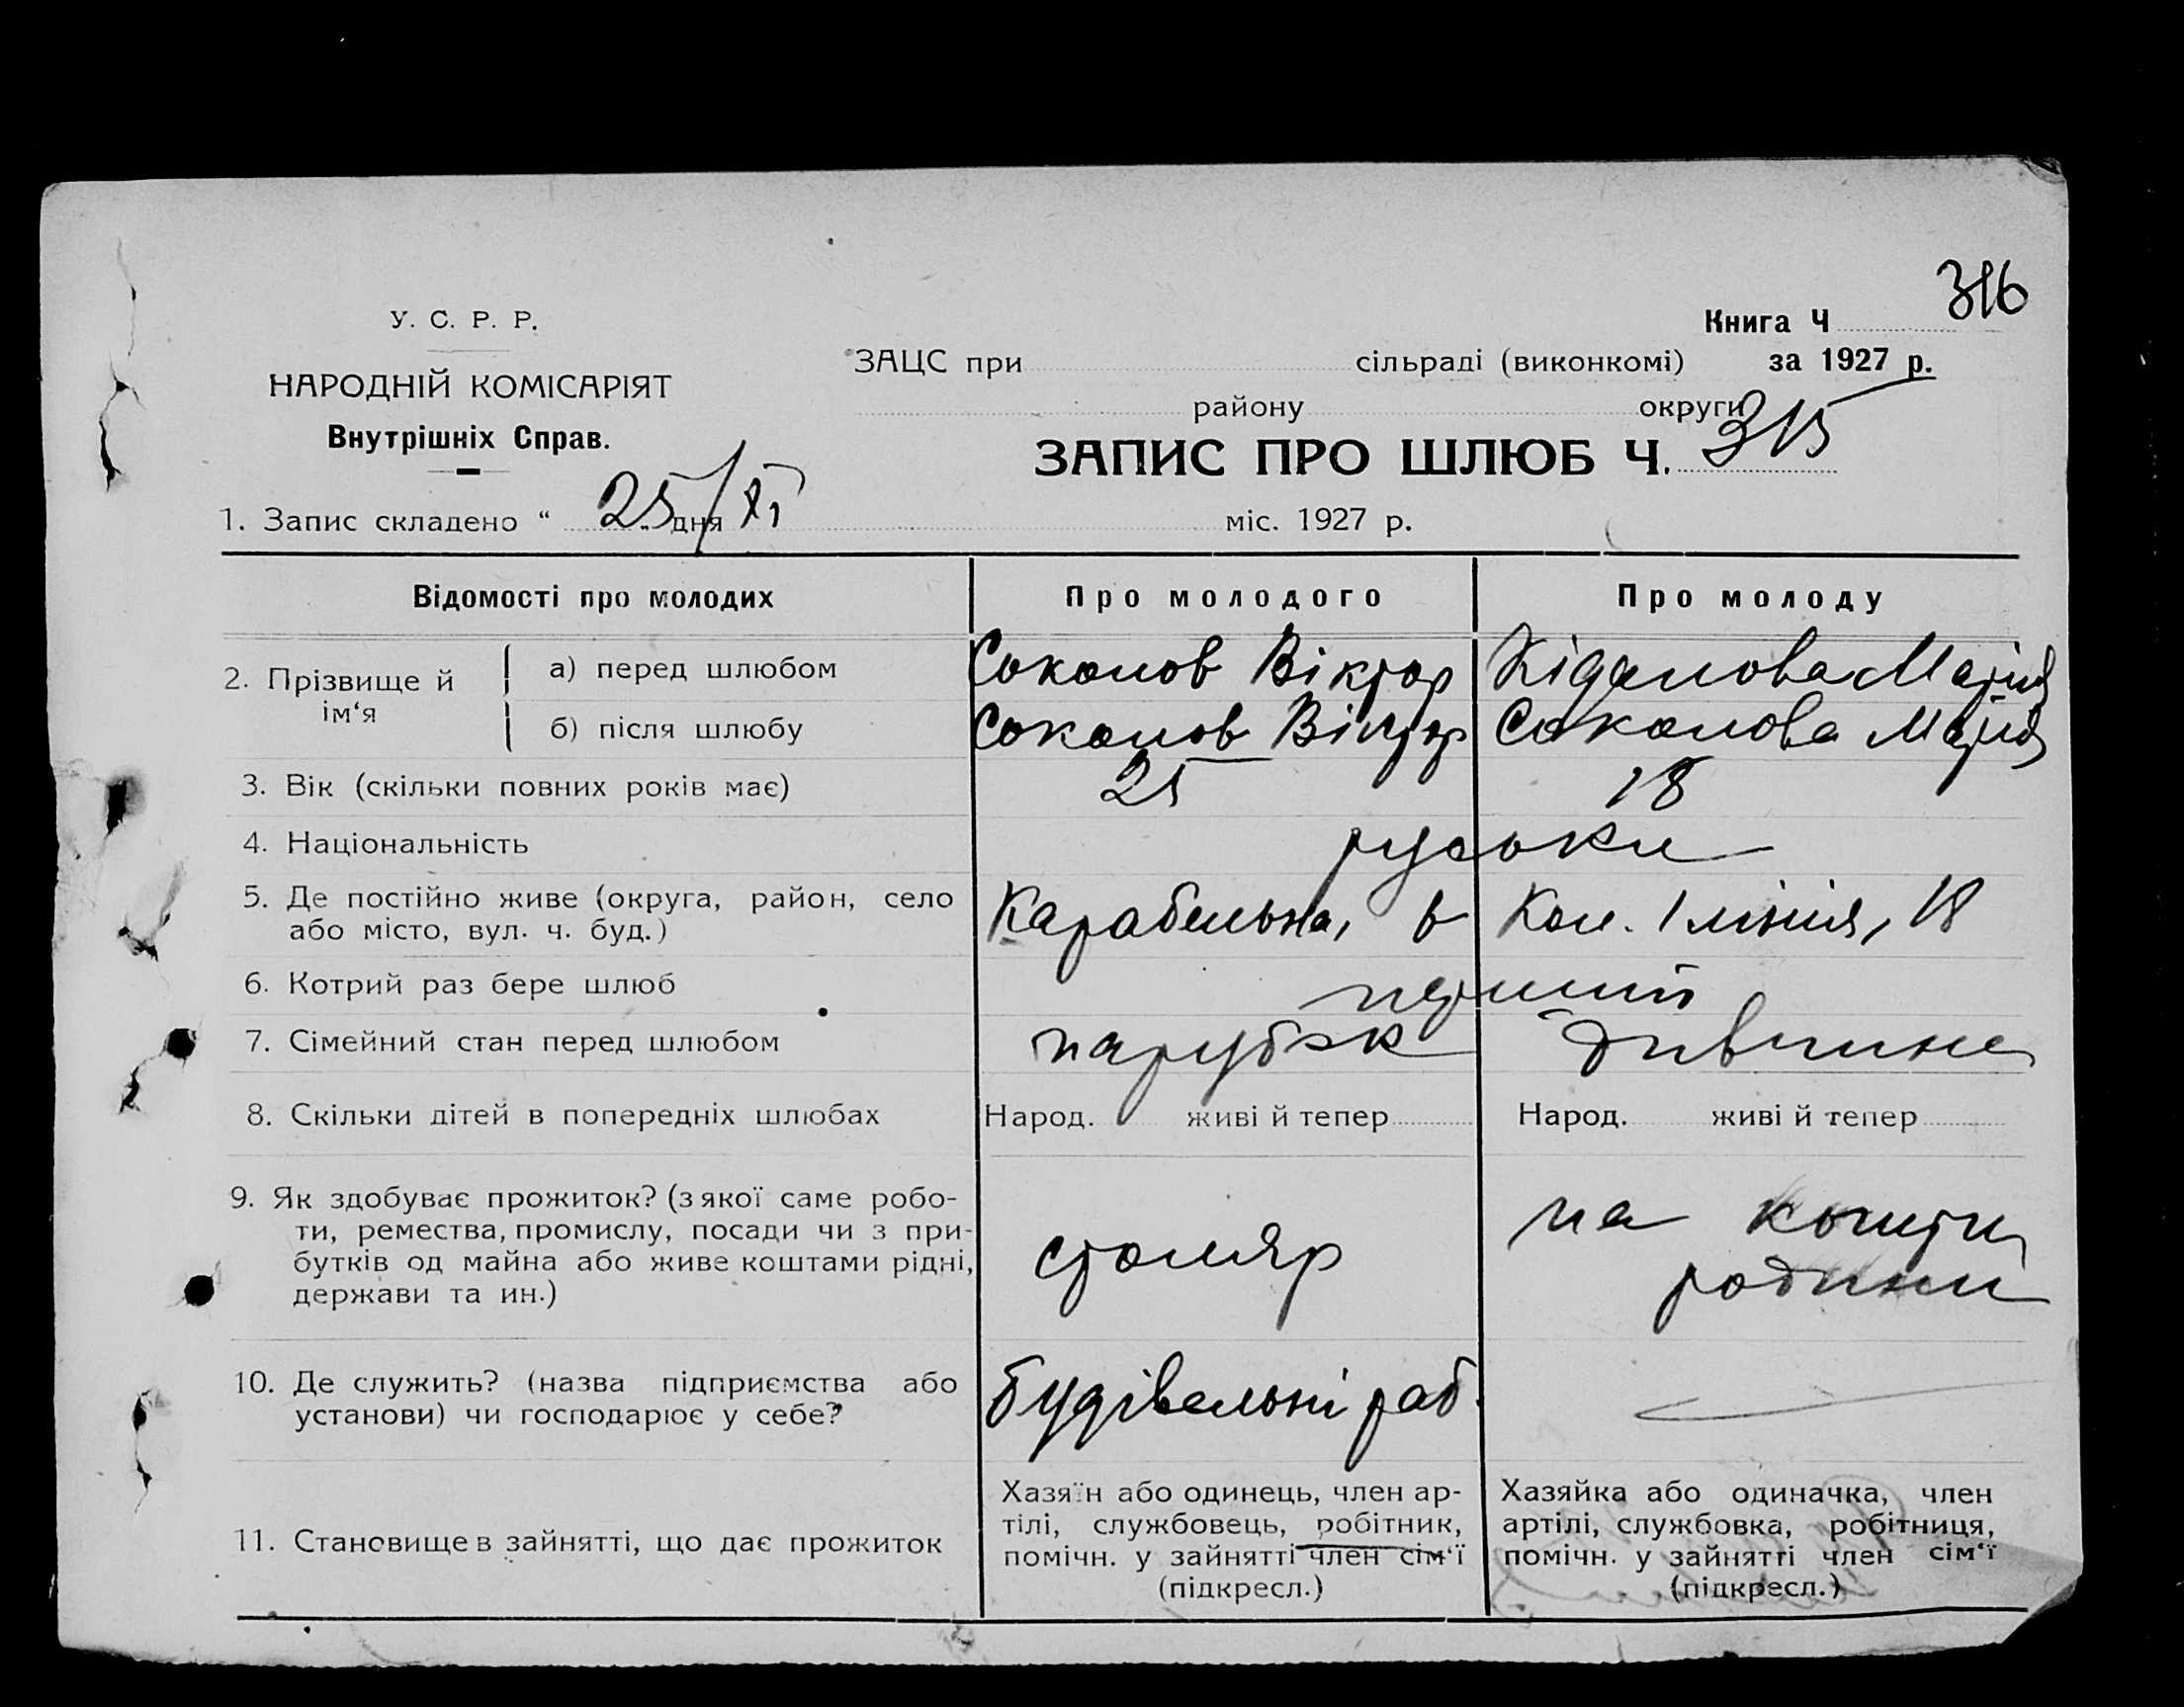 316
У. С. Р. Р.
НАРОДНІЙ КОМІСАРІЯТ
Внутрішніх Справ.
Книга Ч
ЗАЦС при сільраді (виконкомі) за 1927 р.
району округи
ЗАПИС ПРО ШЛЮБ Ч. 315
1. Запис складено “ 25/XI „ дня міс. 1927 р.
Відомості про молодих Про молодого Про молоду
2. Прізвище й ім‘я
а) перед шлюбом Соколов Віктор Кіданова Марія
б) після шлюбу Соколов Віктор Соколова Марія
3. Вік (скільки повних років має) 25 18
4. Національність руськи
5. Де постійно живе (округа, район, село
або місто, вул. ч. буд.) Карабельна, Кол. 1 лінія, 18
6. Котрий раз бере шлюб перший
7. Сімейний стан перед шлюбом парубок дивчина
8. Скільки дітей в попередніх шлюбах Народ. живі й тепер Народ. живі й тепер
9. Як здобуває прожиток? (з якої саме робо-
ти, ремества, промислу, посади чи з при-
бутків од майна або живе коштами рідні,
держави та ин.)
столяр
на кошти
родини
10. Де служить? (назва підприємства або
установи) чи господарює у себе?
будівельні раб.
11. Становище в зайнятті, що дає прожиток
Хазяїн або одинець, член ар-
тілі, службовець, робітник,
помічн. у зайнятті член сім‘ї
(підкресл.)
Хазяйка або одиначка, член
артілі, службовка, робітниця,
помічн. у зайнятті член сім‘ї
(підкресл.)